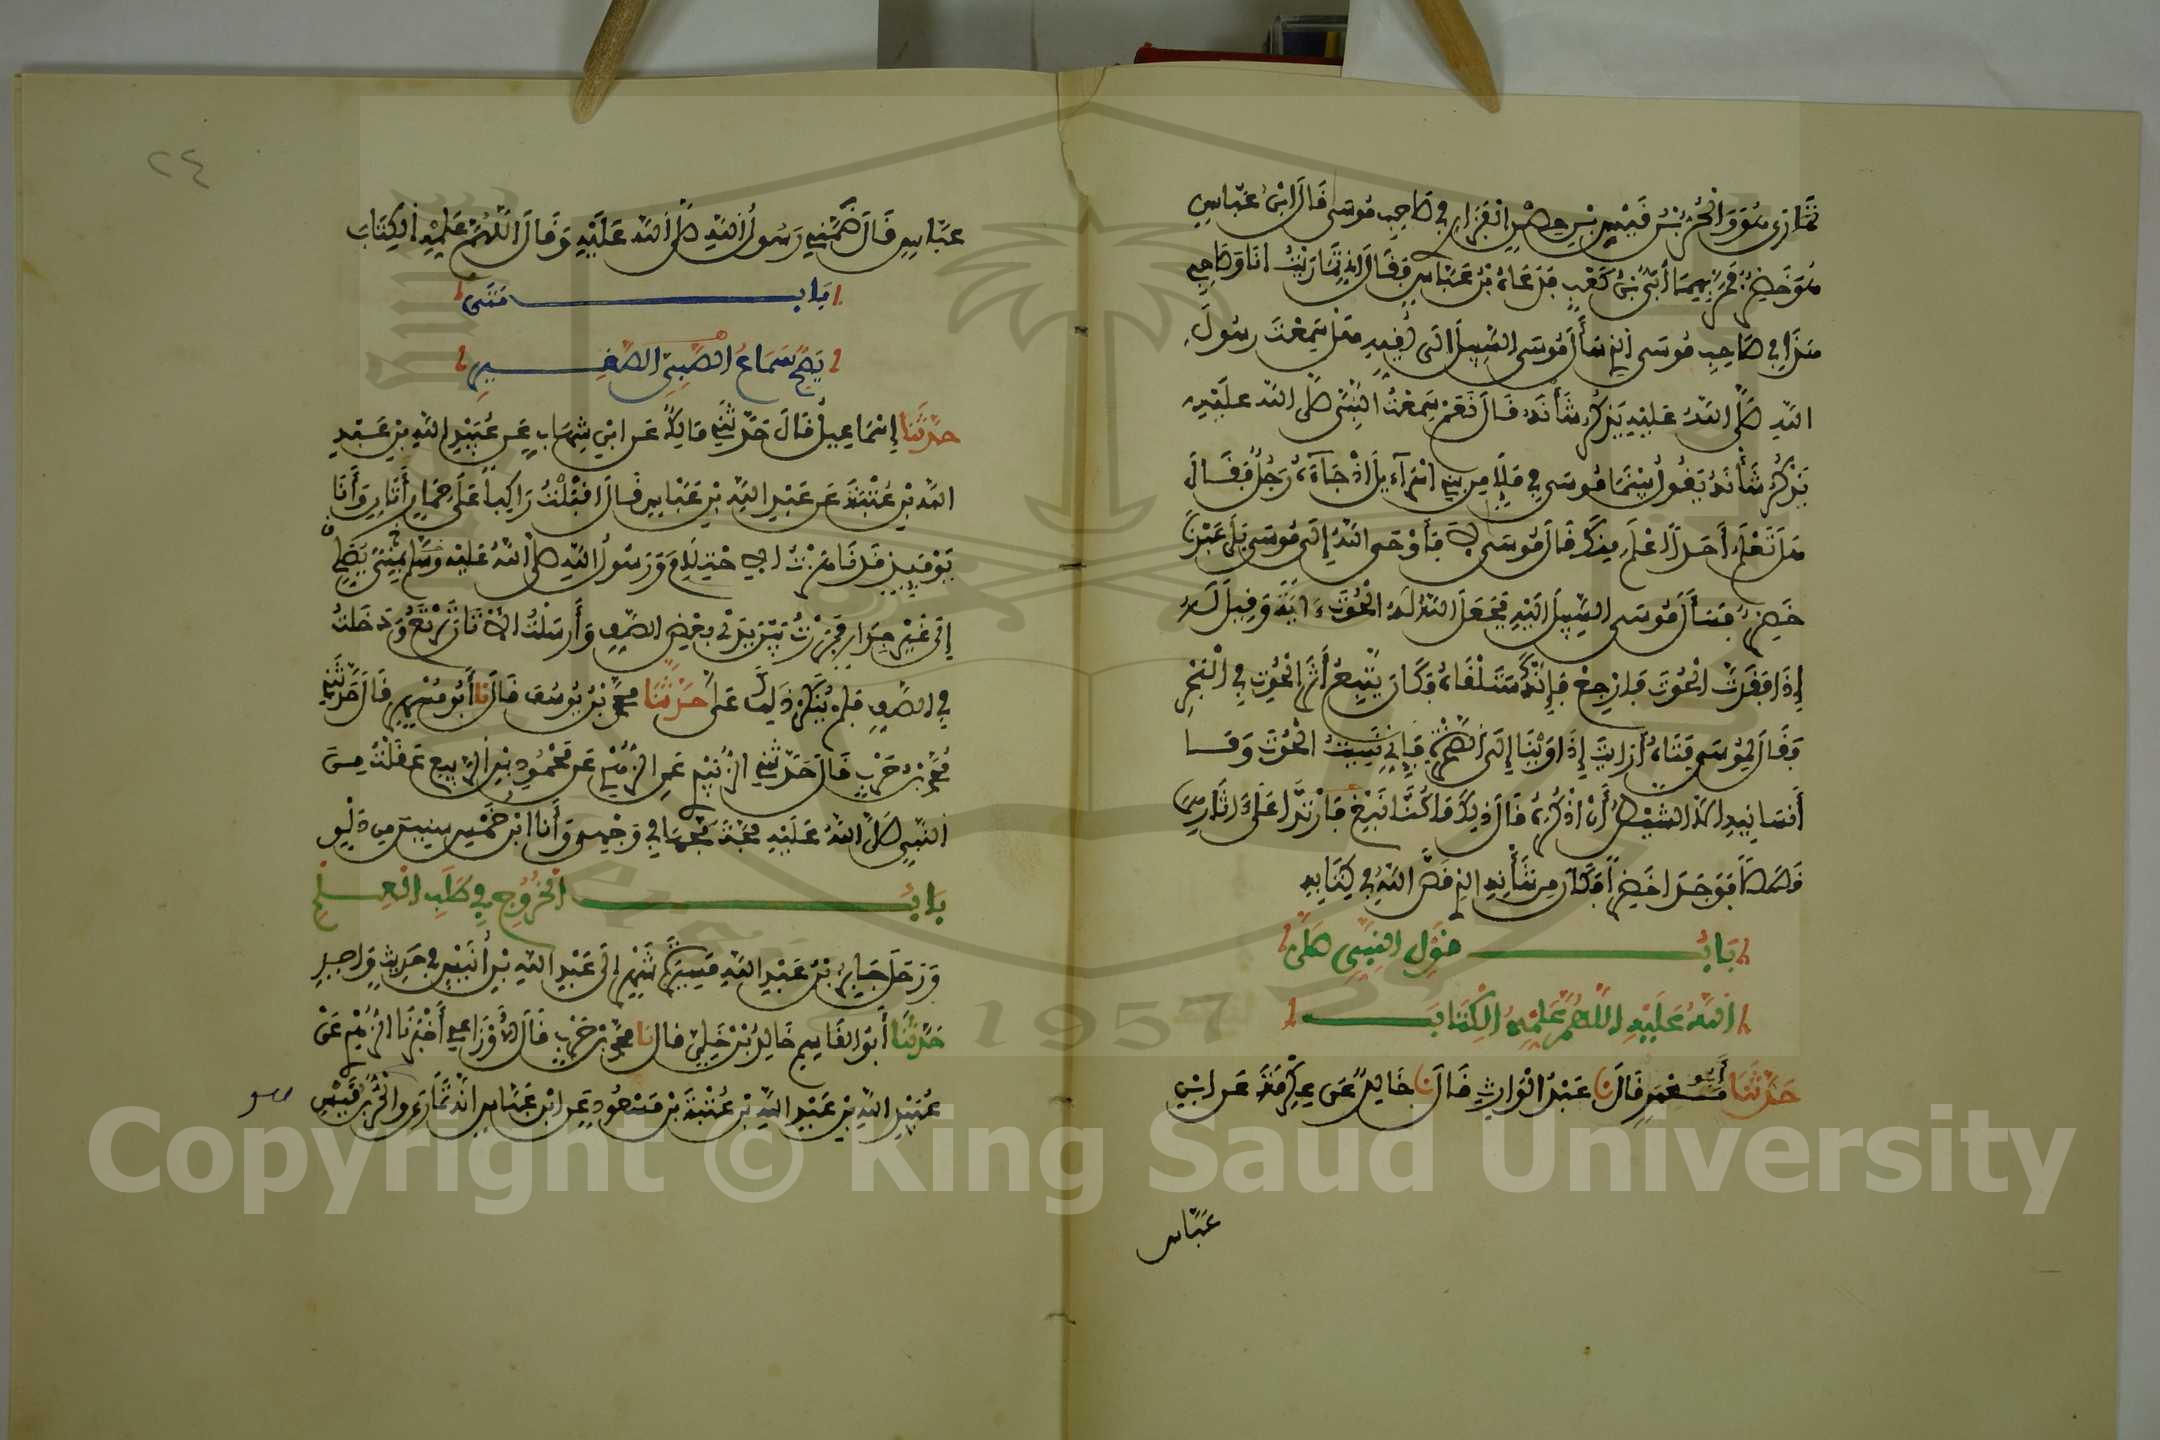 تَمَارَى هُوَ وَالْحُرُّ بْنُ قَيْسِ بْنِ حِصْنٍ الْفَزَارِي فِي صَاحِبِ مُوسَى قَالَ ابْنُ عَبَّاسٍ
هُوَ خَضِرٌ فَمَرَّ بِهِمَا أُبَيُّ بْنُ كَعْبٍ فَدَعَاهُ بْنُ عَبَّاسٍ فَقَالَ إِنِّي تَمَارَيْتُ أَنَا وَصَاحِبِي
هَذَا فِي صَاحِبِ مُوسَى الذِي سَأَلَ مُوسَى السَّبِيلَ إِلَى لُقِيِّهِ هَلْ سَمِعْتَ رَسُولَ
اللَّهِ صَلَّى اللَّهُ عَلَيْهِ يَذْكُرُ شَأْنَهُ قَالَ نَعَمْ سَمِعْتُ النَّبِيَّ صَلَّى اللَّه عَلَيْهِ
يَذْكُرُ شَأْنَهُ يَقُولُ بَيْنَمَا مُوسَى فِي مَلَإٍ مِنْ بَنِي إِسْرَآءِيلَ إِذْ جَآءَهُ رَجُلٌ فَقَالَ
هَلْ تَعْلَمُ أَحَداً أَعْلَمَ مِنْكَ قَالَ مُوسَى لَا فَأَوْحَى اللَّهُ إِلَى مُوسَى بَلَى عَبْدُنَا
خَضِرٌ فَسَأَلَ مُوسَى السَّبِيلَ إِلَيْهِ فَجَعَلَ اللَّهُ لَهُ الْحُوتَ ءَايَةً وَقِيلَ لَهُ
إِذَا فَقَدْتَ الْحُوتَ فَارْجِعْ فَإِنَّكَ سَتَلْقَاهُ فَكَانَ يَتَّبِعُ أَثَرَ الْحُوتِ فِي الْبَحْرِ
فَقَالَ لِمُوسَى فَتَاهُ أَرَأَيْتَ إِذْ أَوَيْنَا إِلَى الصَّخْرَةِ فَإِنِّي نَسِيتُ الْحُوتَ وَمَا
أَنْسَانِيهِ إِلَّا الشَّيْطَانُ أَنْ أَذْكُرَهُ قَالَ ذَلِكَ مَا كُنَّا نَبْغِ فَارْتَدَّا عَلَى ءَاثَارِهِمَا
قَصَصاً فَوَجَدَا خَضِراً فَكَانَ مِنْ شَأْنِهِمَا الذِي قَصَّ اللَّهُ فِي كِتَابِهِ
بَابُ قَوْلِ النَّبِيِّ صَلَّى
اللَّهُ عَلَيْهِ اللَّهُمَّ عَلِّمْهُ الْكِتَابَ
حَدَّثَنَا أَبُو مَعْمَرٍ قَالَ نا عَبْدُ الْوَارِثِ قَالَ نا خَالِدٌ عَنْ عِكْرِمَةَ عَنِ ابْنِ
عَبَّاسٍ
٢٤
عَبَّاسٍ قَالَ ضَمَّنِي رَسُولُ اللَّهِ صَلَّى اللَّه عَلَيْهِ وَقَالَ اللَّهُمَّ عَلِّمْهُ الْكِتَابَ
بَابٌ مَتَى
يَصِحُّ سَمَاعُ الصَّبِيِّ الصَّغِيرِ
حَدَّثَنَا إِسْمَاعِيلُ قَالَ حَدَّثَنِي مَالِكٌ عَنِ ابْنِ شِهَابٍ عَنْ عُبَيْدِ اللَّهِ بْنِ عَبْدِ
اللَّهِ بْنِ عُتْبَةَ عَنْ عَبْدِ اللَّهِ بْنِ عَبَّاسٍ قَالَ أَقْبَلْتُ رَاكِباً عَلَى حِمَارٍ أَتَانٍ وَأَنَا
يَوْمَئِذٍ قَدْ نَاهَزْتُ الِاحْتِلَامَ وَرَسُولُ اللَّهِ صَلَّى اللَّهُ عَلَيْهِ وَسَلَّمَ بِمِنىً يُصَلِّي
إِلَى غَيْرِ جِدَارٍ فَمَرَرْتُ بَيْنَ يَدَيْ بَعْضِ الصَّفِّ وَأَرْسَلْتُ الْأَتَانَ تَرْتَعُ وَدَخَلْتُ
فِي الصَّفِّ فَلَمْ يُنْكَرْ ذَلِكَ عَلَيَّ حَدَّثَنَا مُحَمَّدُ بْنُ يُوسُفَ قَالَ نا أَبُو مُسْهِرٍ قَالَ حَدَّثَنِي
مُحَمَّدُ بْنُ حَرْبٍ قَالَ حَدَّثَنِي الزُّبَيْدِي عَنِ الزُّهْرِي عَنْ مَحْمُودِ بْنِ الرَّبِيعِ عَقَلْتُ مِنَ
النَّبِيِّ صَلَّى اللَّهُ عَلَيْهِ مَجَّةً مَجَّهَا فِي وَجْهِي وَأَنَا ابْنُ خَمْسِ سِنِينَ مِنْ دَلْوٍ
بَابُ الْخُرُوجِ فِي طَلَبِ الْعِلْمِ
وَرَحَلَ جَابِرُ بْنُ عَبْدِ اللَّهِ مَسِيرَةَ شَهْرٍ إِلَى عَبْدِ اللَّهِ بْنِ أُنَيْسٍ فِي حَدِيثٍ وَاحِدٍ
حَدَّثَنَا أَبُو الْقَاسِمِ خَالِدُ بْنُ خَلِيٍّ قَالَ نا مُحَمَّدُ بْنُ حَرْبٍ قَالَ الْأَوْزَاعِي أَخْبَرَنَا الزُّهْرِي عَنْ
عُبَيْدِ اللَّهِ بْنِ عَبْدِ اللَّهِ بْنِ عُتْبَةَ بْنِ مَسْعُودٍ عَنِ ابْنِ عَبَّاسٍ أَنَّهُ تَمَارَى وَالْحُرُّ بْنُ قَيْسِ
1957
Copyright © King Saud University